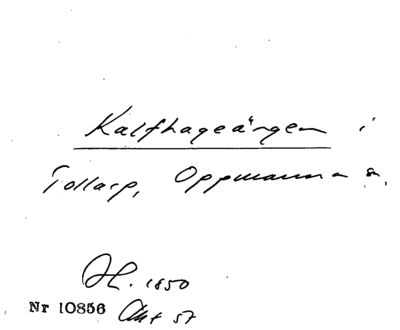 Kalfhageängen i
Tollarp, Oppmanna s.
H. 1850
Nr 10856 Akt 57